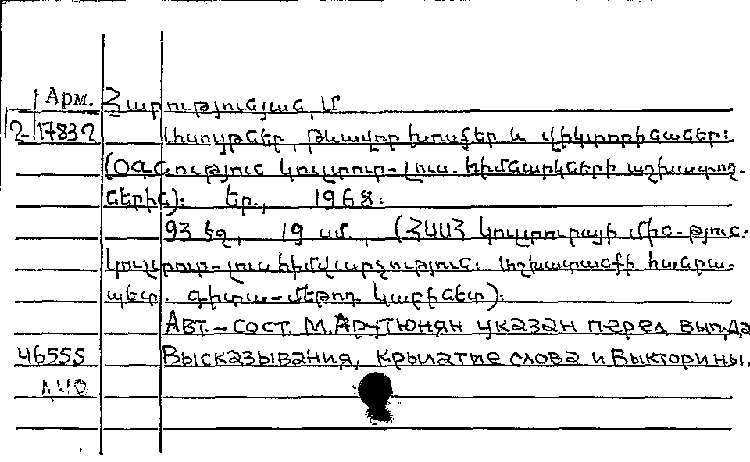 Арм. Հարությունյան, Մ
2-17832 Ասույթներ, թևավոր խոսքեր և վիկտորինաներ։
(Օգնություն կուլտուր-լուս. հիմնարկների աշխատող-
ներին)։ Եր., 1968.
93 էջ, 19 սմ., (ՀՍՍՀ կուլտուրայի մին-թյուն.
կուլտուր-լուս հիմ վարչություն։ Աշխատանքի հանրա-
պետ. գիտա-մեթոդ. կաբինետ).
Авт.-сост. М.Арутюнян указан перед вып.да
46555 Высказывания, крылатие слова и Викторины.